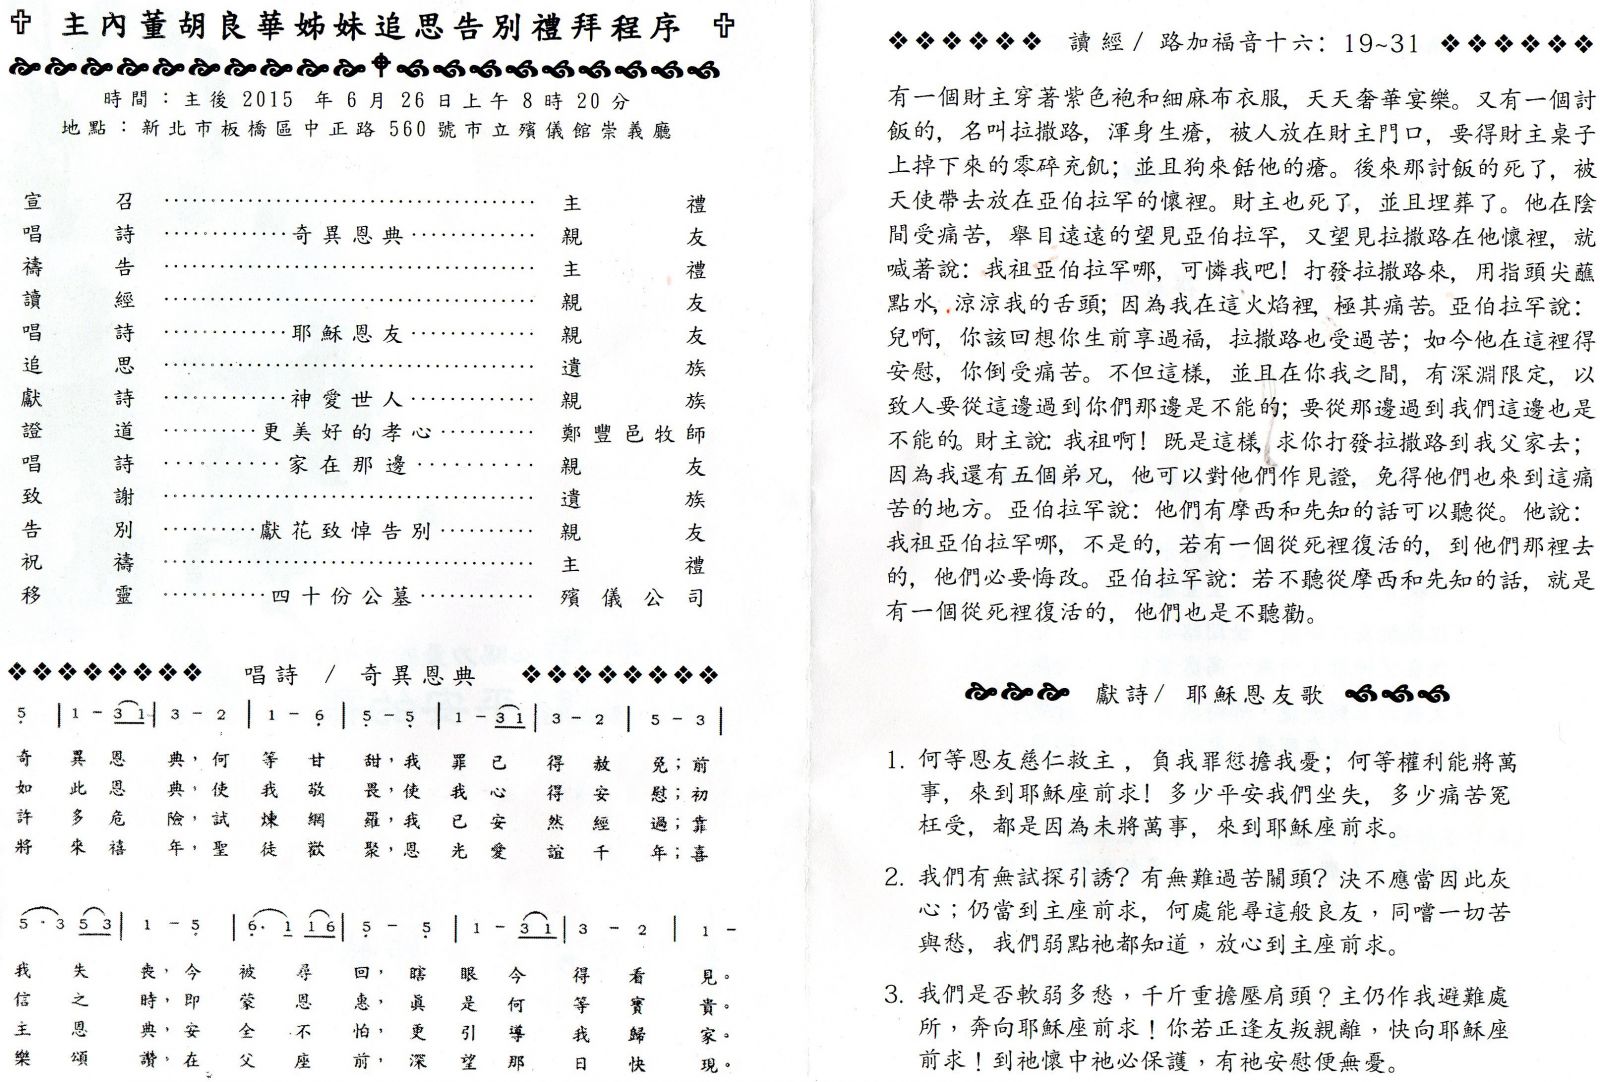 ✞ 主內董胡良華姊妹追思告別禮拜程序 ✞
時間：主後 2015 年 6 月 26 日上午 8 時 20 分
地點：新北市板橋區中正路 560 號市立殯儀館崇義廳
宣召……………………………主禮
唱詩…………奇異恩典…………親友
禱告……………………………主禮
讀經……………………………親友
唱詩…………耶穌恩友…………親友
追思……………………………遺族
獻詩…………神愛世人…………親族
證道………更美好的孝心………鄭豐邑牧師
唱詩…………家在那邊…………親友
致謝……………………………遺族
告別………獻花致悼告別………親友
祝禱……………………………主禮
移靈…………四十份公墓…………殯儀公司
❖❖❖❖❖❖❖❖ 唱詩 / 奇異恩典 ❖❖❖❖❖❖❖❖
5 | 1 - 3 1 | 3 - 2 | 1 - 6 | 5 - 5 | 1 - 3 1 | 3 - 2 | 5 - 3 |
奇異恩典，何等甘甜，我罪已得赦免；前
如此恩典，使我敬畏，使我心得安慰；初
許多危險，試煉網羅，我已安然經過；靠
將來禧年，聖徒歡聚，恩光愛誼千年；喜
5 · 3 5 3 | 1 - 5 | 6 · 1 1 6 | 5 - 5 | 1 - 3 1 | 3 - 2 | 1 -
我失喪，今被尋回，瞎眼今得看見。
信之時，即蒙恩惠，真是何等寶貴。
主恩典，安全不怕，更引導我歸家。
樂頌讚，在父座前，深望那日快現。
❖❖❖❖❖❖ 讀經/ 路加福音十六：19~31 ❖❖❖❖❖❖
有一個財主穿著紫色袍和細麻布衣服，天天奢華宴樂。又有一個討
飯的，名叫拉撒路，渾身生瘡，被人放在財主門口，要得財主桌子
上掉下來的零碎充飢；並且狗來餂他的瘡。後來那討飯的死了，被
天使帶去放在亞伯拉罕的懷裡。財主也死了，並且埋葬了。他在陰
間受痛苦，舉目遠遠的望見亞伯拉罕，又望見拉撒路在他懷裡，就
喊著說：我祖亞伯拉罕哪，可憐我吧！打發拉撒路來，用指頭尖蘸
點水，涼涼我的舌頭；因為我在這火焰裡，極其痛苦。亞伯拉罕說：
兒啊，你該回想你生前享過福，拉撒路也受過苦；如今他在這裡得
安慰，你倒受痛苦。不但這樣，並且在你我之間，有深淵限定，以
致人要從這邊過到你們那邊是不能的；要從那邊過到我們這邊也是
不能的。財主說：我祖啊！既是這樣，求你打發拉撒路到我父家去；
因為我還有五個弟兄，他可以對他們作見證，免得他們也來到這痛
苦的地方。亞伯拉罕說：他們有摩西和先知的話可以聽從。他說：
我祖亞伯拉罕哪，不是的，若有一個從死裡復活的，到他們那裡去
的，他們必要悔改。亞伯拉罕說：若不聽從摩西和先知的話，就是
有一個從死裡復活的，他們也是不聽勸。
獻詩/ 耶穌恩友歌
1. 何等恩友慈仁救主，負我罪愆擔我憂；何等權利能將萬
事，來到耶穌座前求！多少平安我們坐失，多少痛苦冤
枉受，都是因為未將萬事，來到耶穌座前求。
2. 我們有無試探引誘？有無難過苦關頭？決不應當因此灰
心；仍當到主座前求，何處能尋這般良友，同嚐一切苦
與愁，我們弱點祂都知道，放心到主座前求。
3. 我們是否軟弱多愁，千斤重擔壓肩頭？主仍作我避難處
所，奔向耶穌座前求！你若正逢友叛親離，快向耶穌座
前求！到祂懷中祂必保護，有祂安慰便無憂。